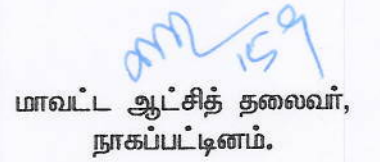 மாவட்ட ஆட்சித் தலைவர்,
நாகப்பட்டினம்.